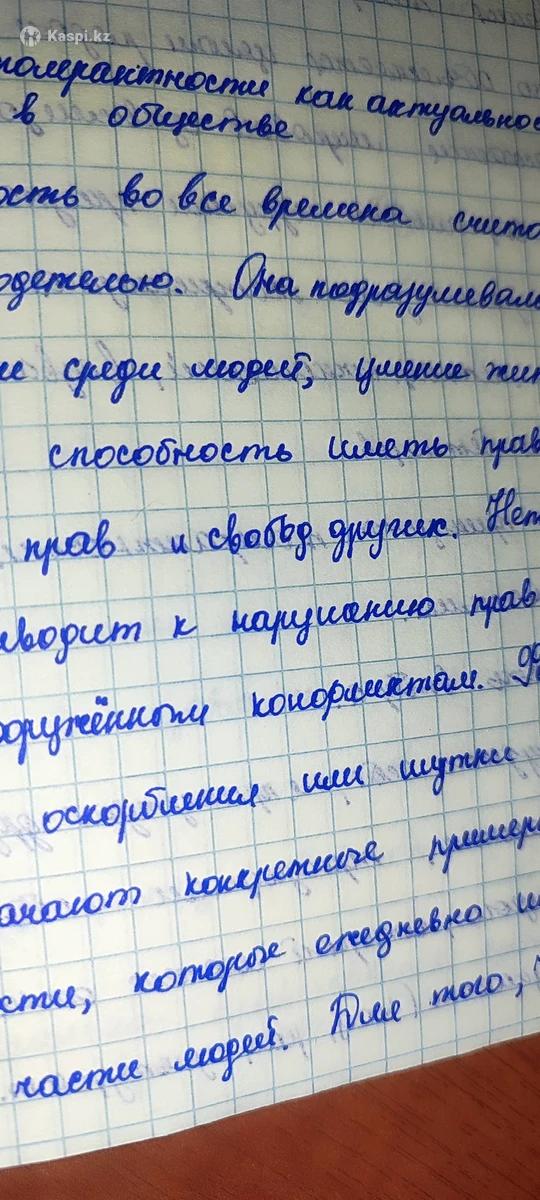 Kaspi.kz
толерантности как актуальнос
в обществе
ость во все времена счита
одетелью. Она подразумевал
ие среди людей, умение жит
способность иметь прав
прав и свобод других. Нет
иводит к нарушению прав
оружённым конфликтам.
оскорбления или шутки
ачают конкретные пример
сти, которые ежедневно
части людей. Для того,